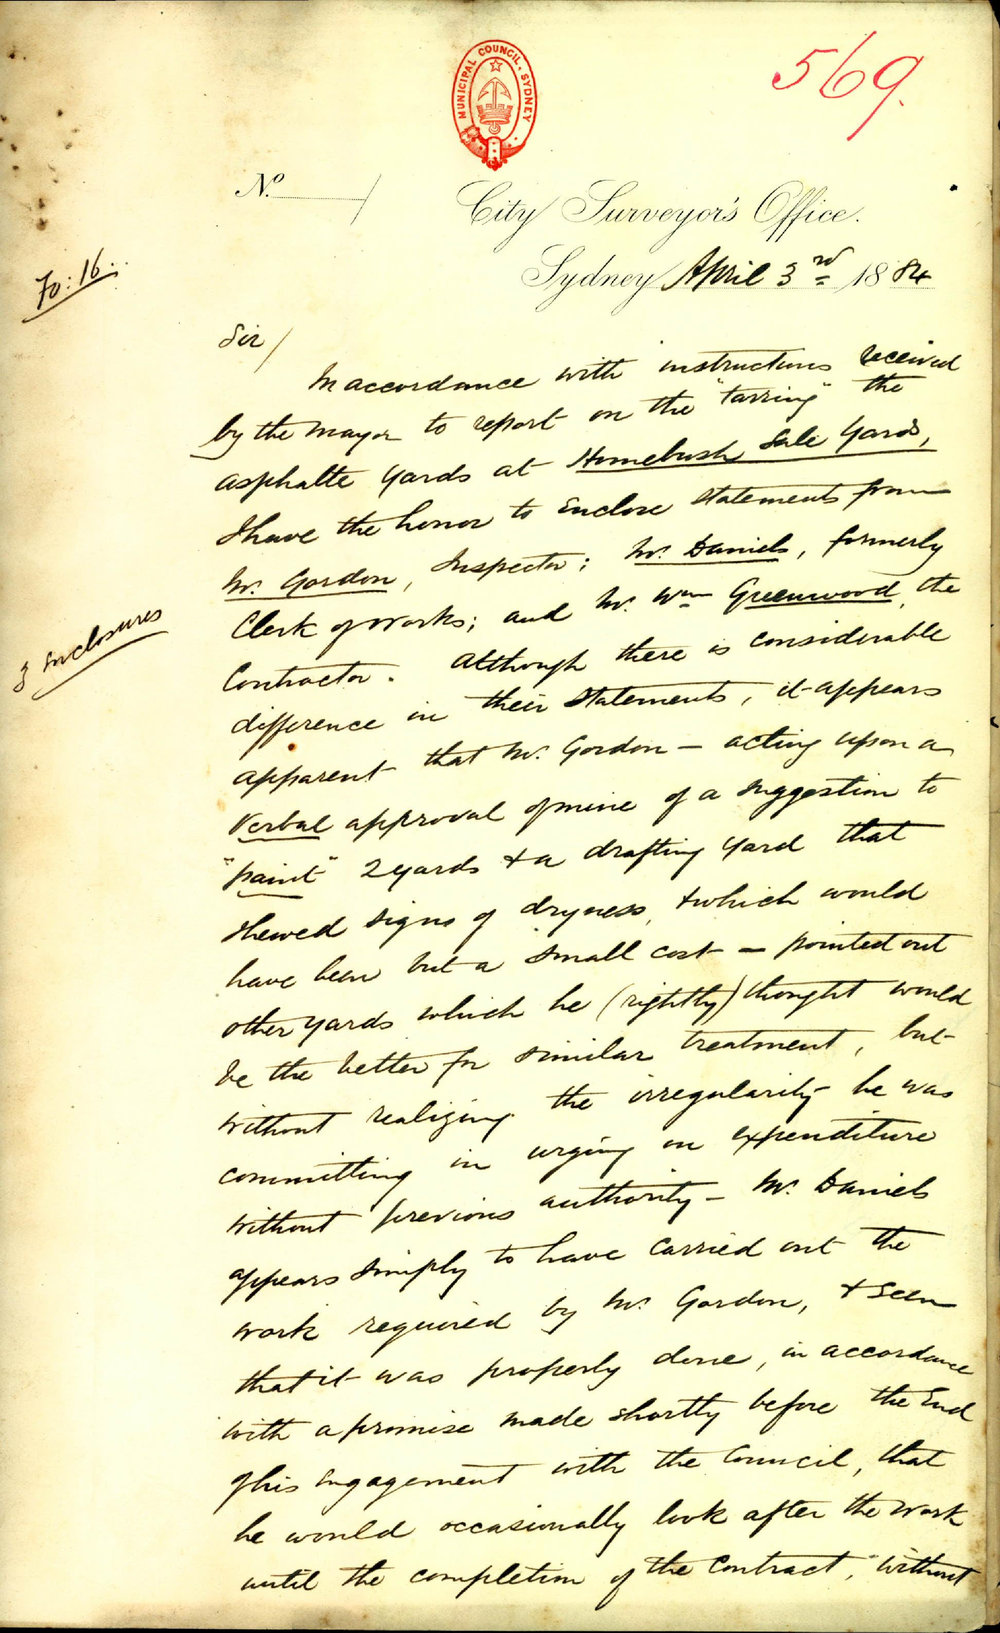 569.
MUNICIPAL COUNCIL. SYDNEY
No. /
City Surveyor's Office.
Sydney April 3rd 1884
Fo: 16.
Sir/
In accordance with instructions received
by the Mayor to report on the "tarring" the
asphalte yards at Homebush Sale Yards,
I have the honor to enclose statements from
Mr. Gordon, Inspector; Mr. Daniels, formerly
Clerk of Works; and Mr. Wm Greenwood, the
3 Enclosures
Contractor. Although there is considerable
difference in their statements, it appears
apparent that Mr. Gordon — acting upon a
verbal approval of mine of a suggestion to
"paint" 2 yards & a drafting yard that
shewed signs of dryness, & which would
have been but a small cost — pointed out
other yards which he (rightly) thought would
be the better for similar treatment, but
without realizing the irregularity he was
committing in urging on expenditure
without previous authority — Mr. Daniels
appears simply to have carried out the
work required by Mr. Gordon, & seen
that it was properly done, in accordance
with a promise made shortly before the end
of his engagement with the Council, that
he would occasionally look after the work
until the completion of the contract, without